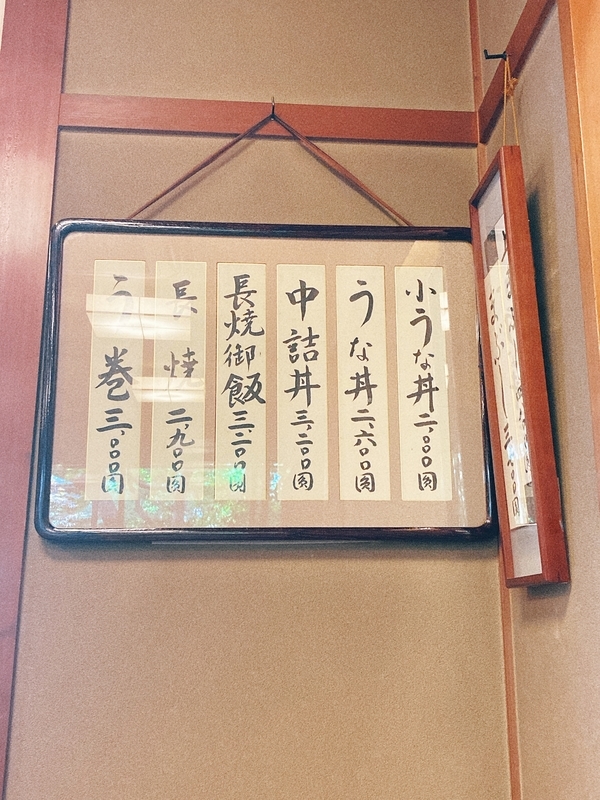 小うな丼二、〇〇〇圓
うな丼二、六〇〇圓
中詰丼三、二〇〇圓
長焼御飯三、二〇〇圓
長焼二、九〇〇圓
う巻三、〇〇〇圓